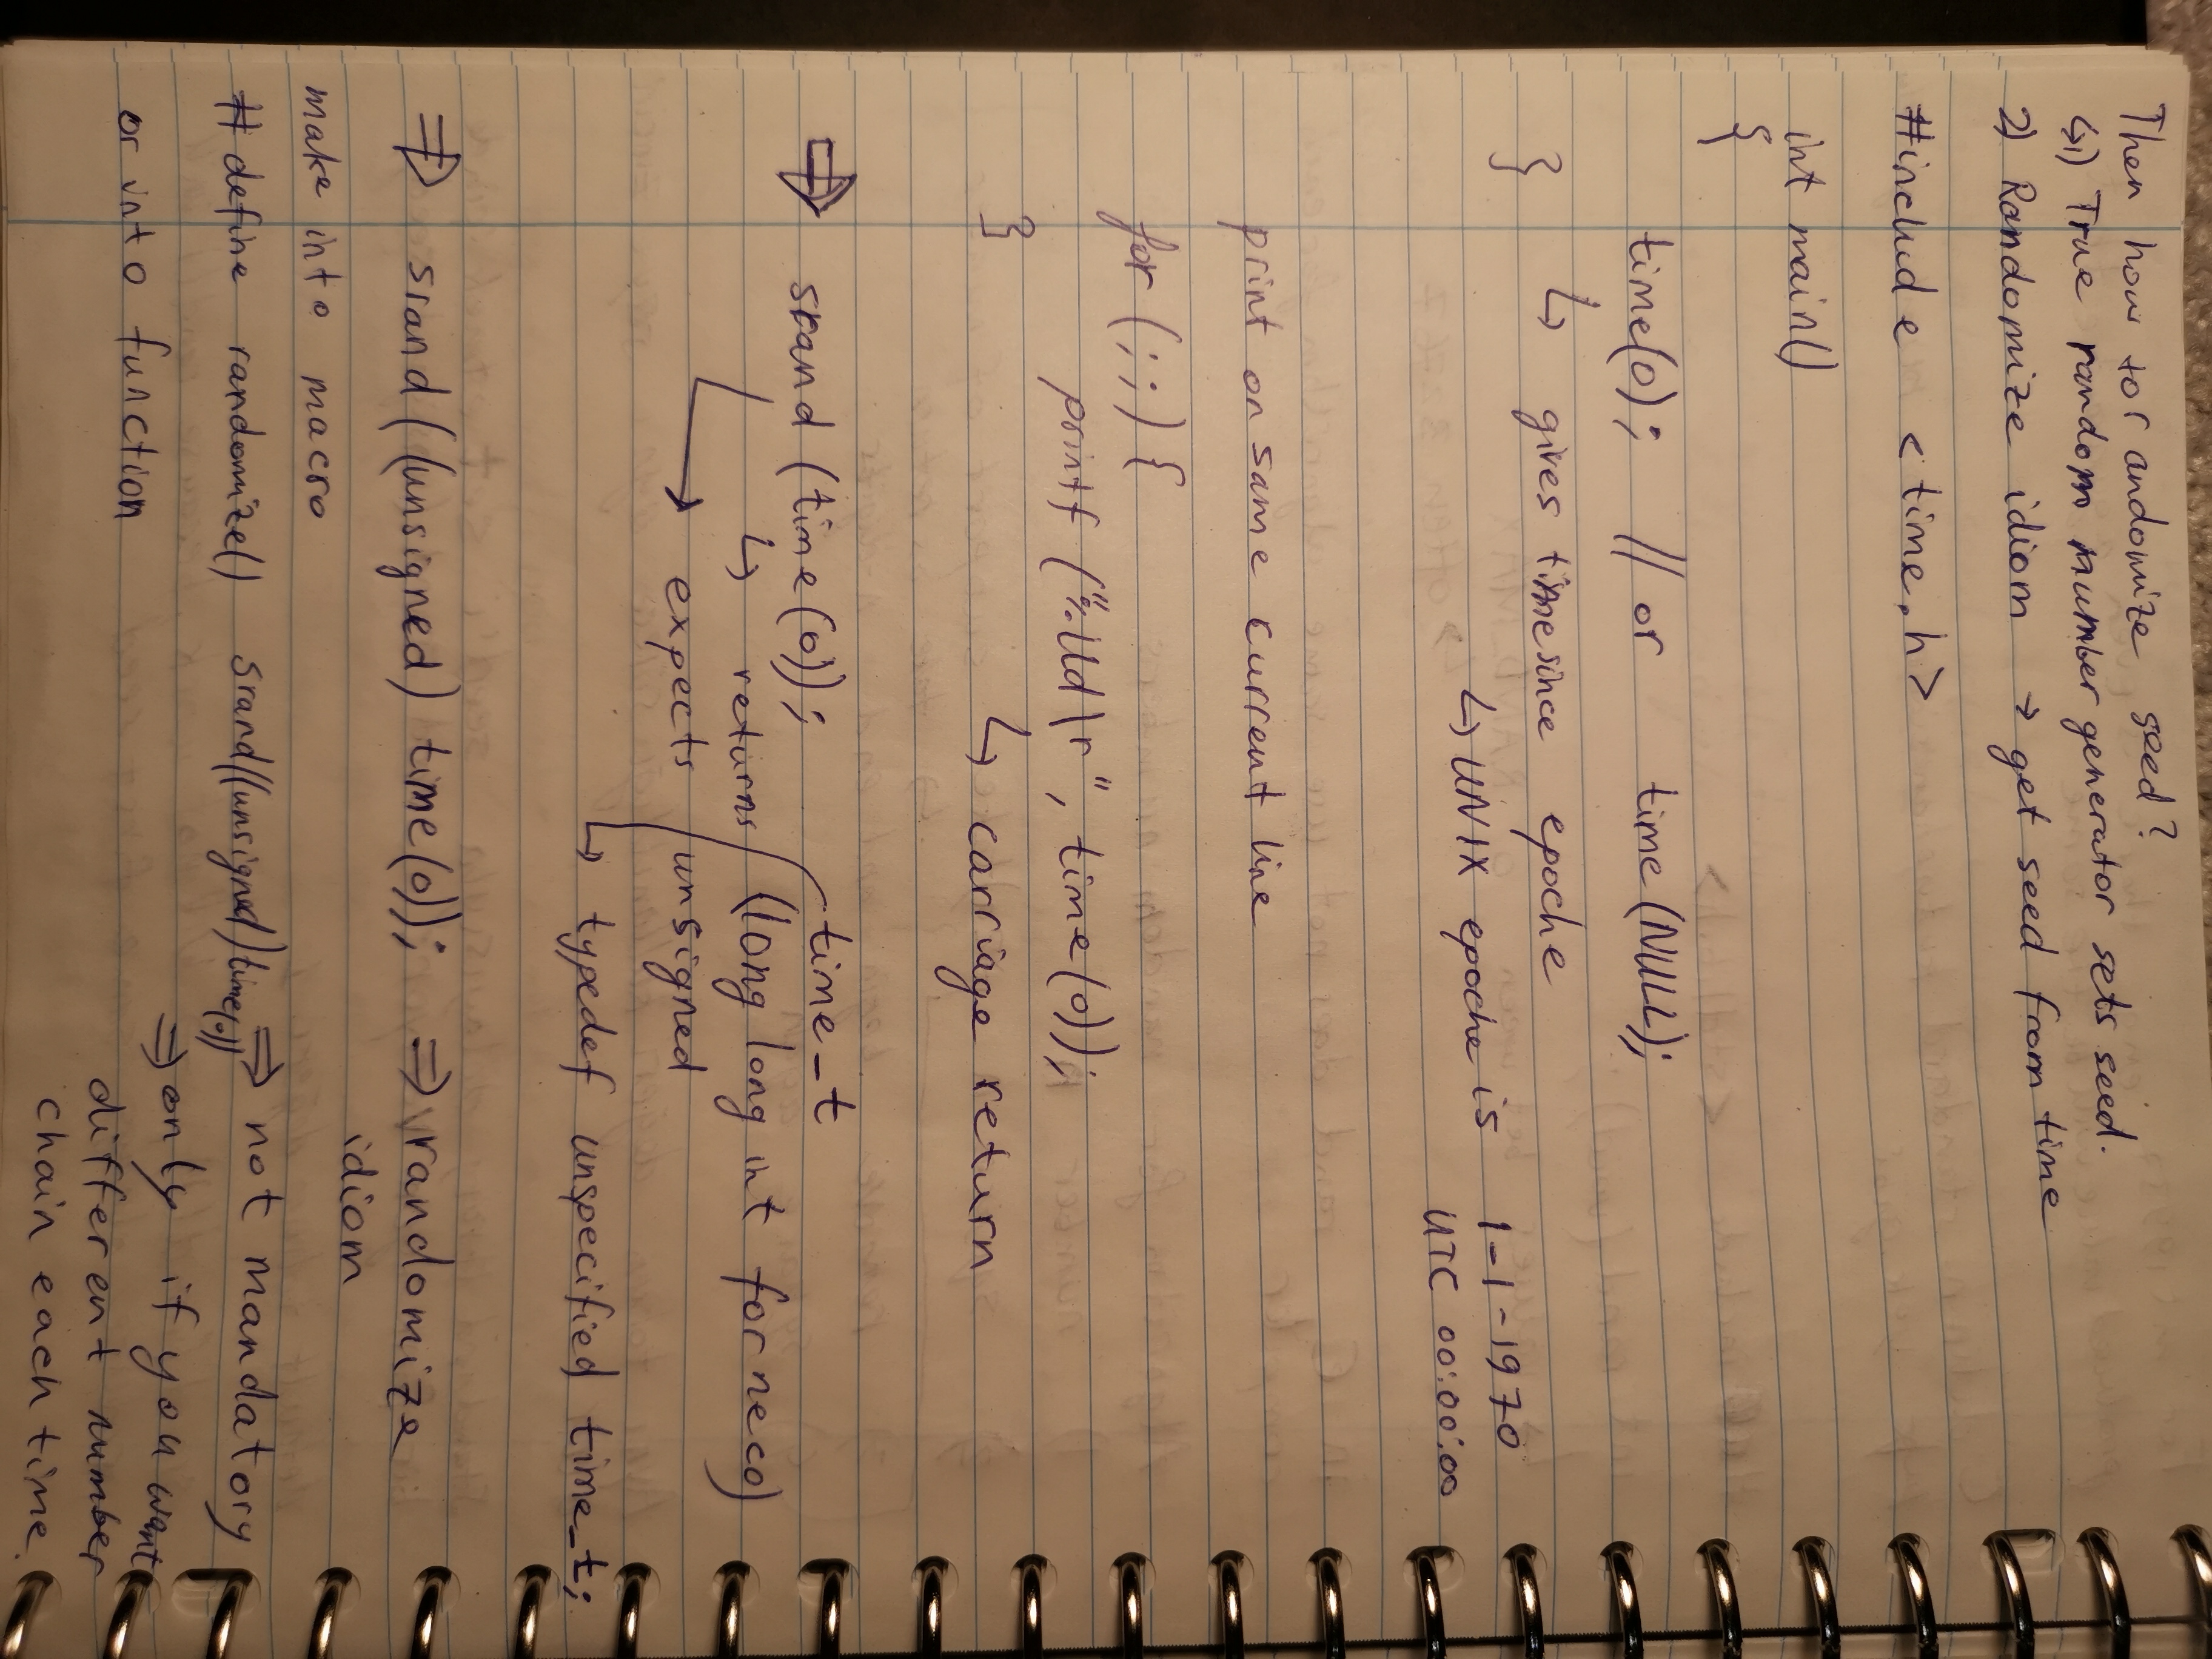 Then how to randomize seed?
↳1) True random number generator sets seed.
2) Randomize idiom → get seed from time
#include <time.h>
int main()
{
time(0); // or time(NULL);
↳ gives time since epoche
}
↳ UNIX epoche is 1-1-1970
UTC 00:00:00
print on same current line
for (;;) {
printf ("%lld\r", time(0));
}
↳ carriage return
⇒ srand (time(0)); time_t
↳ returns (long long int for neco)
→ expects unsigned
↳ typedef unspecified time_t;
⇒ srand((unsigned) time(0)); ⇒ randomize
idiom
make into macro
#define randomize() srand((unsigned)time(0)) ⇒ not mandatory
⇒ only if you want
or into function
different number
chain each time.